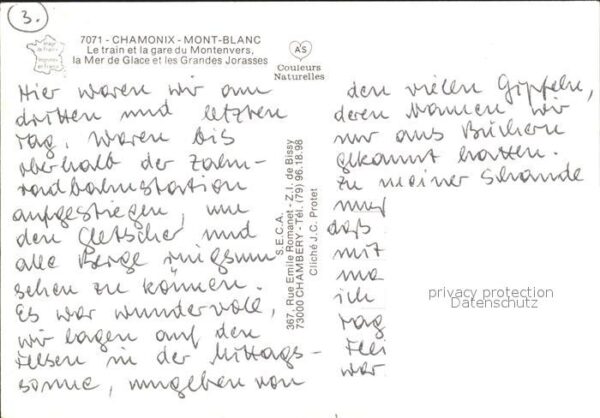 3.
Image de France
7071 - CHAMONIX - MONT-BLANC
Le train et la gare du Montenvers,
la Mer de Glace et les Grandes Jorasses
AS
Couleurs
Naturelles
Hier waren wir am
dritten und letzten
Tag. Waren bis
oberhalb der Zahn-
radbahnstation
aufgestiegen, um
den Gletscher und
alle Berge ringsum
sehen zu können.
Es war wundervoll,
wir lagen auf den
Felsen in der Mittags-
sonne, umgeben von
S.E.C.A.
367, Rue Emile Romanet - Z.I. de Bissy
73000 CHAMBERY - Tél. (79) 96.18.98
Cliché J.C. Protet
den vielen Gipfeln,
deren Namen wir
nur aus Büchern
gekannt hatten.
Zu meiner Schande
muß
daß
mit
ma
ich
Tag
war
privacy protection
Datenschutz